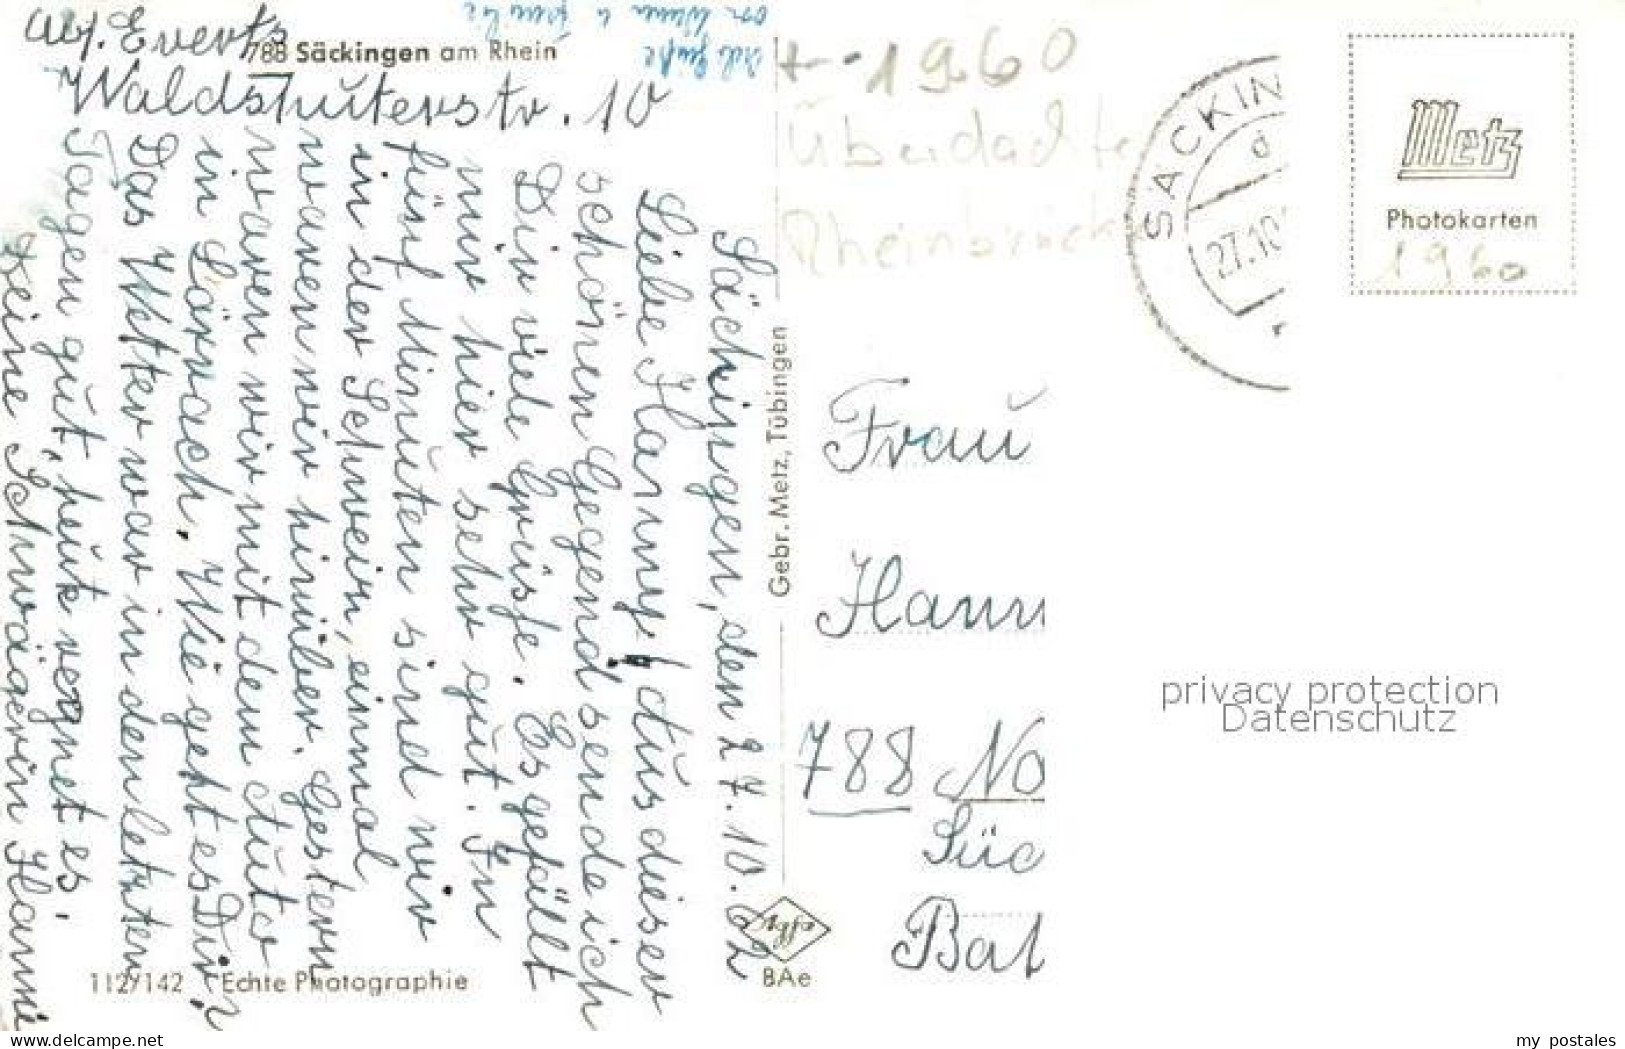 Abs. Everts
Waldshuterstr. 10
788 Säckingen am Rhein
Säckingen, den 27.10.62
Liebe Hanny! Aus dieser
schönen Gegend sende ich
Dir viele Grüsse. Es gefällt
mir hier sehr gut. In
fünf Minuten sind wir
in der Schweiz, einmal
waren wir hinüber. Gestern
waren wir mit dem Auto
in Lörrach. Wie geht es Dir?
Das Wetter war in den letzten
Tagen gut, heute regnet es.
Deine Schwägerin Hanni
112/142 Echte Photographie
Gebr. Metz, Tübingen
Agfa
BAe
1960
Überdachte
Rheinbrück
SÄCKIN
d
27.10
Metz
Photokarten
1960
Frau
Hann
788 No
Süd
Bah
privacy protection
Datenschutz
www.delcampe.net
my_postales